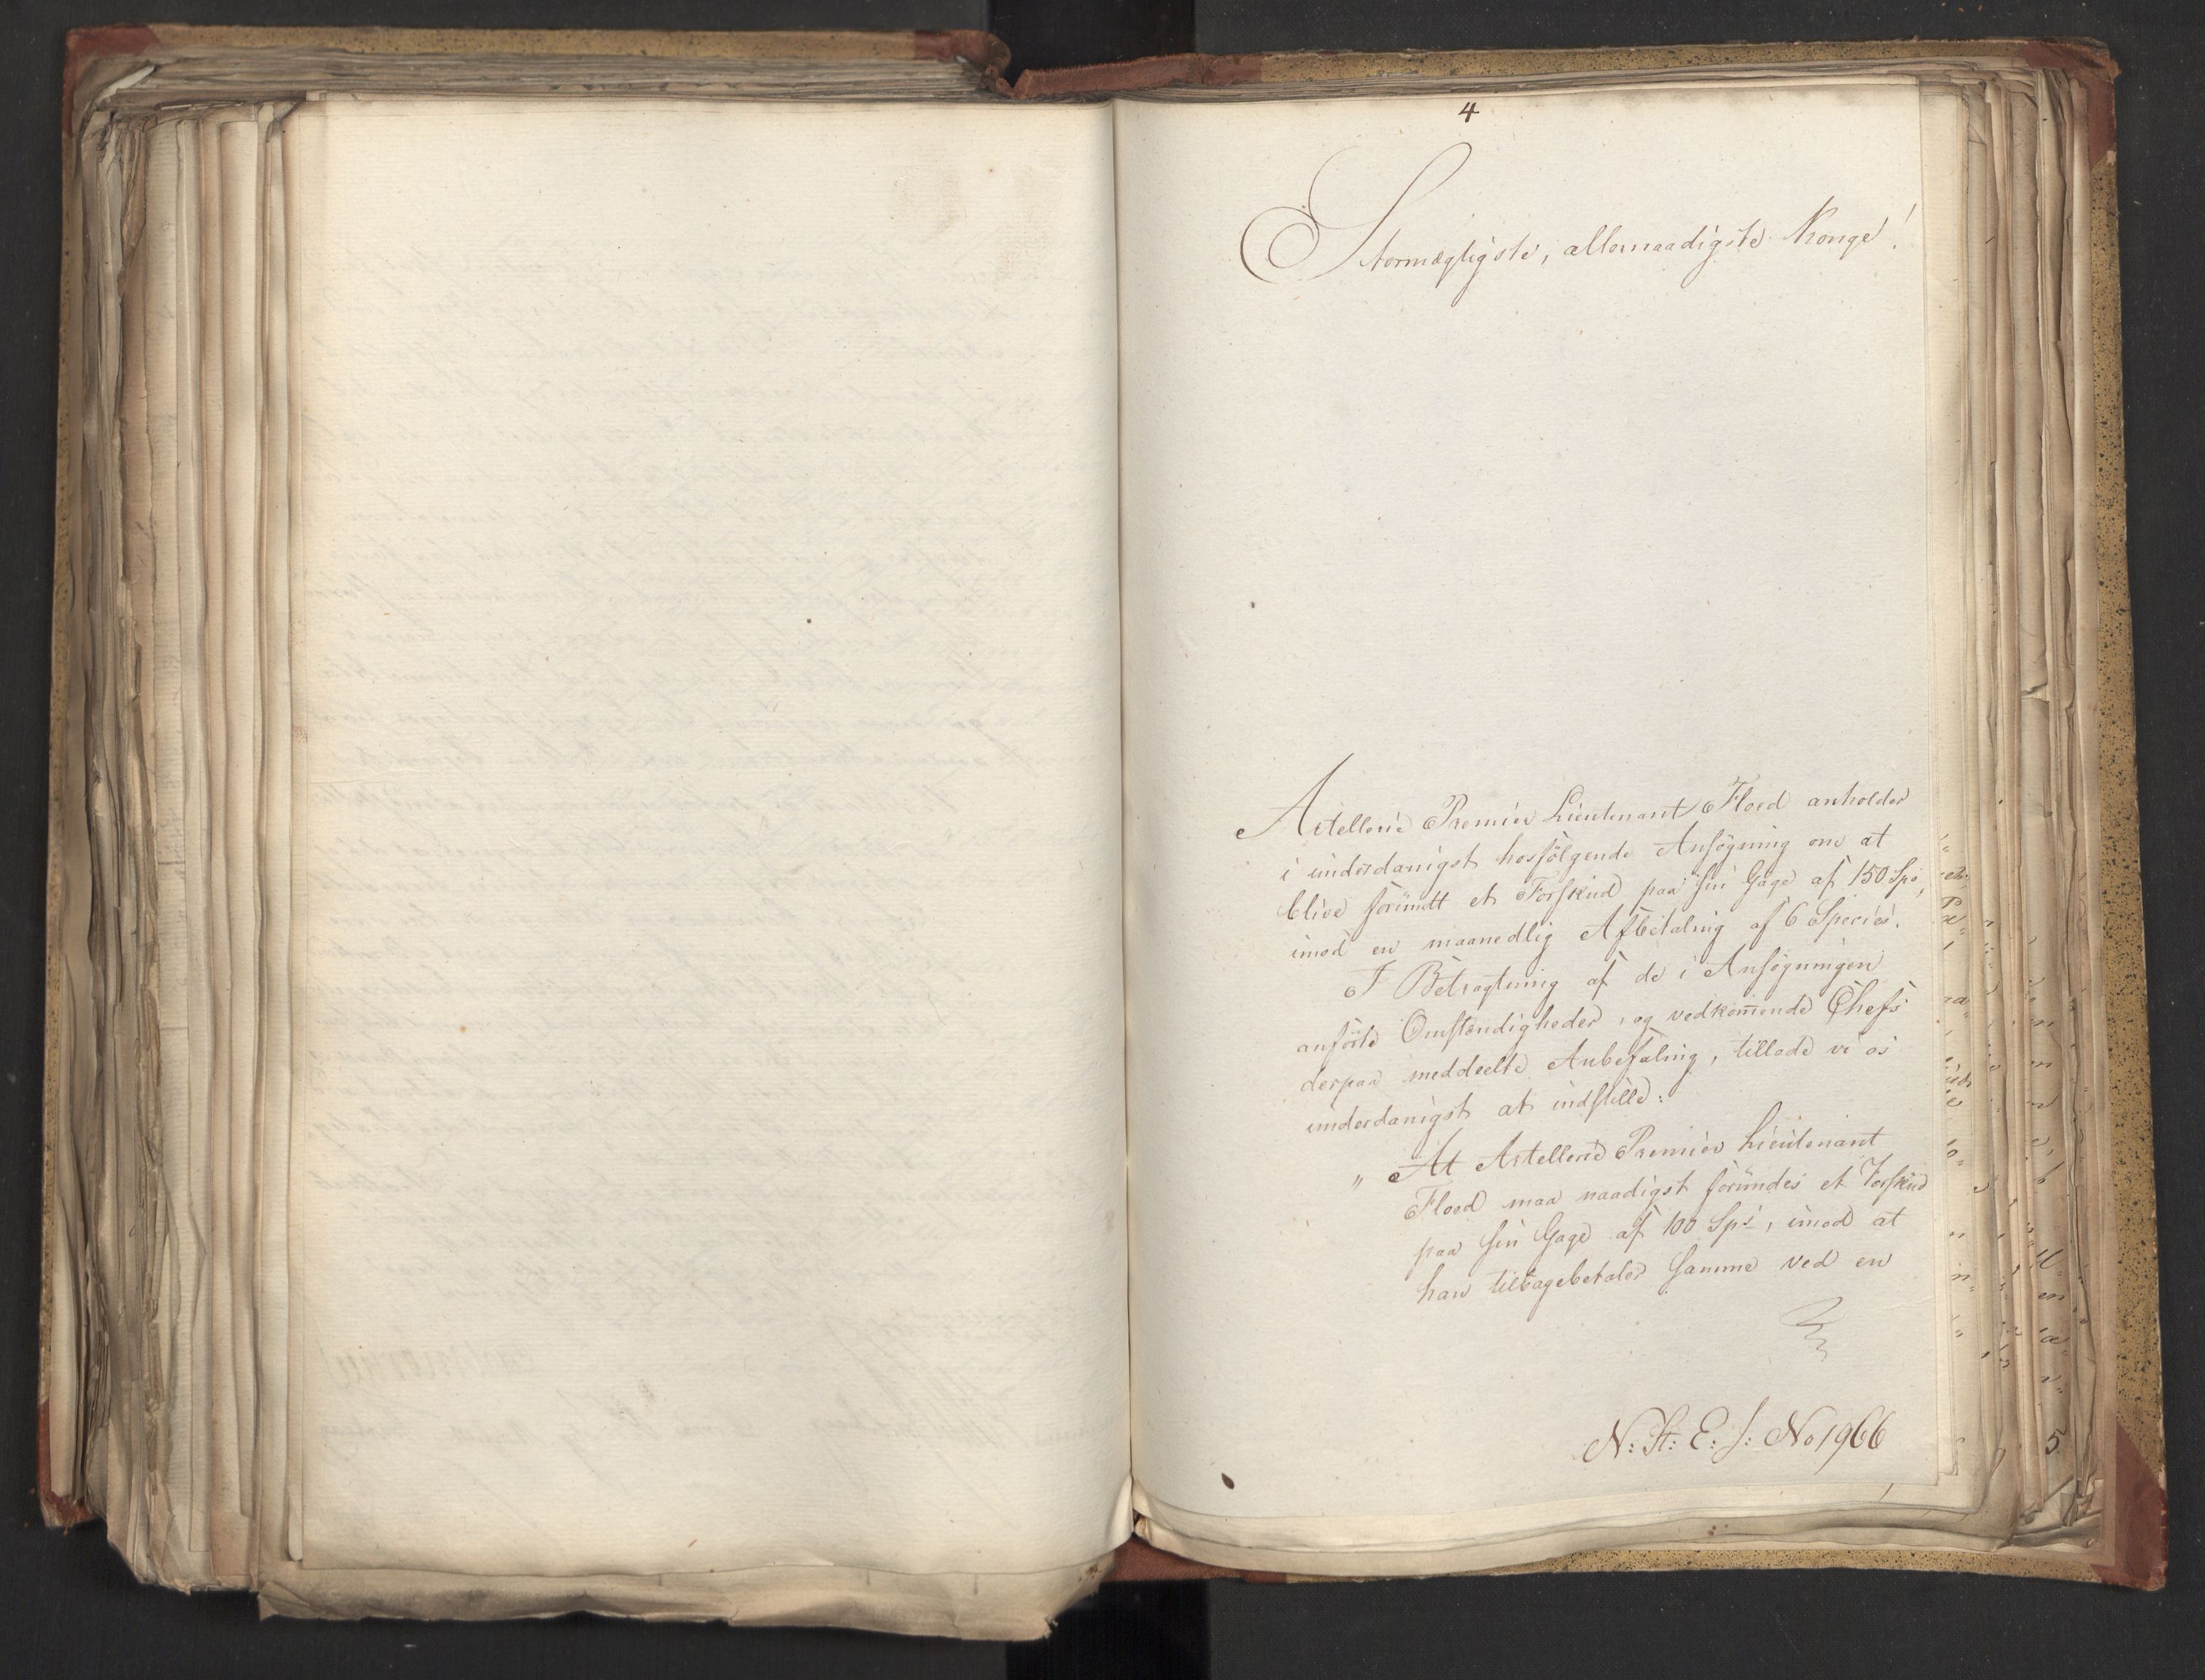 4
Stormægtigste, allernaadigste Konge!
Artellerie Premier Lieutenant Floed anholder
i underdanigst hosfölgende Ansögning om at
blive forundt et Forskud paa sin Gage af 150 Sps,
imod en maanedlig Afbetaling af 6 Species.
I Betragtning af de i Ansögningen
anförte Omstændigheder, og vedkom̄ende Chefs
derpaa meddeelte Anbefaling, tillade vi os
underdanigst at indstille:
" At Artellerie Premier Lieutenant
Floed maa naadigst forundes et Forskud
paa sin Gage af 100 Sps, imod at
han tilbagebetaler samme ved en
N: St: E: J: No 1966
5